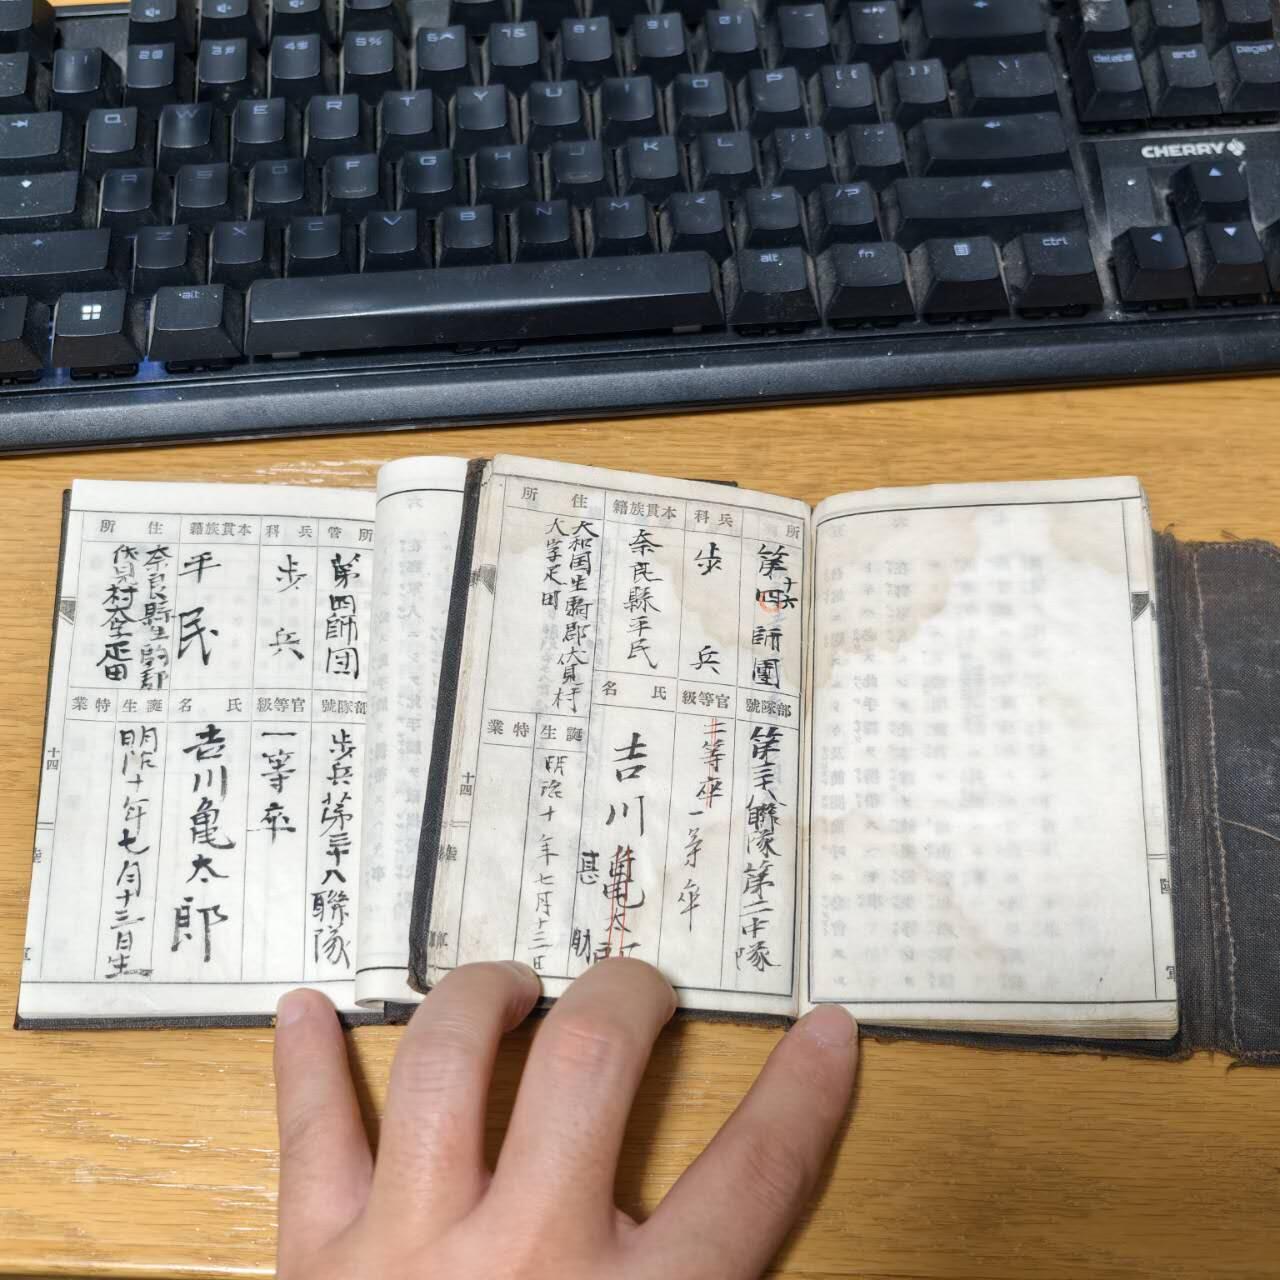 Q W E R T Y U I O P
F G H J K L
Z X C V B N M
alt
alt fn ctrl
delete end
CHERRY
所管
第四師団
兵科
歩兵
本貫族籍
平民
住所
奈良縣生駒郡
伏見村大字疋田
部隊號
歩兵第三十八聯隊
官等級
一等卒
氏名
吉川亀太郎
誕生
明治十年七月十三日生
特業
十四
所
第四十六師團
兵科
歩兵
本貫族籍
奈良縣平民
住所
大和国生駒郡伏見村
大字疋田
部隊號
聯隊第二中隊
官等級
二等卒一等卒
氏名
吉川亀太郎
甚助
誕生
明治十年七月十三日
特業
十四